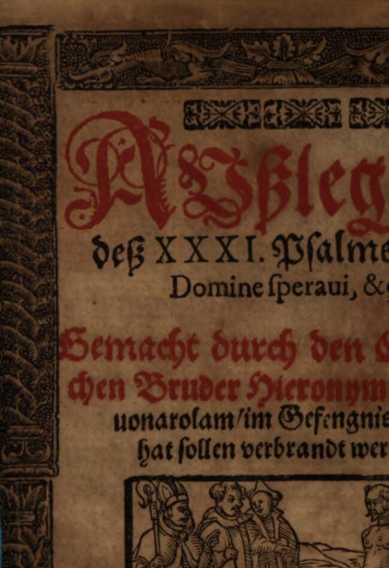 AUßleg
deß XXXI. Psalme
Domine ſperaui, &c
Gemacht durch den
chen Bruder Hieronym
uonarolam/im Gefengnis
hat ſollen verbrandt wer